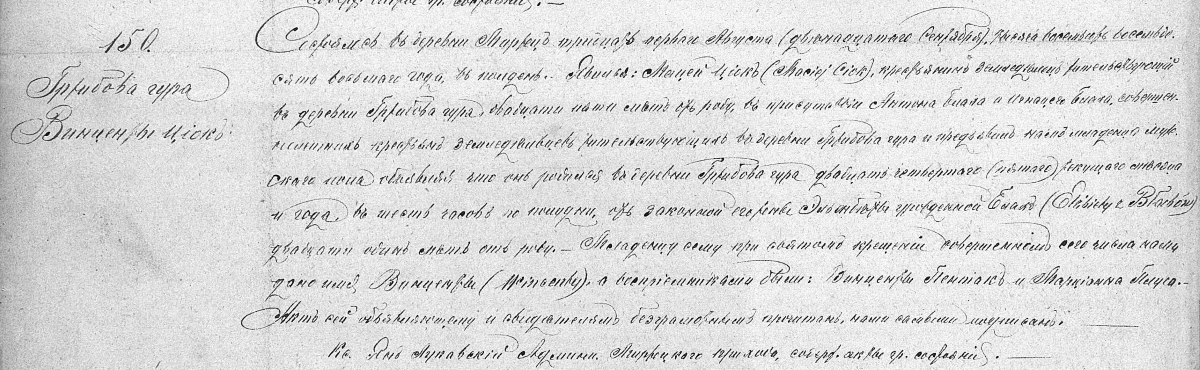 150.
Грибова гура
Винценты Ціокъ
Состоялось въ деревни тридцать перваго Августа (двѣнадцатаго Сентября), тысяча восемьсотъ восемьде-
сятъ восьмаго года, въ полдень. Явился: Мацей Ціокъ (Maciej Ciok), крестьянинъ земледѣлецъ жительствующій
въ деревни Грибова гура двадцати пяти лѣтъ отъ роду, въ присутствіи Антона и совершен-
нолѣтнихъ крестьянъ жительствующихъ въ деревни Грибова гура и предъявилъ намъ младенца муж-
скаго пола объявляя что онъ родился въ деревни Грибова гура двадцать четвертаго (пятаго) текущаго мѣсяца
и года, въ шесть часовъ по полудни, отъ законной его жены Эльжбѣты урожденной (Elżbiety z)
двадцати одинъ лѣтъ отъ роду. — Младенцу сему при святомъ крещеніи совершенномъ сего числа нами
дано имя Винценты (Wincenty), а воспріемниками были: Винценты Пентакъ и Маріанна
Актъ сей объявляющему и свидѣтелямъ безграмотнымъ прочитанъ, нами самыми подписанъ. —
Кс. Янъ Админи. прихода, содерж. акты гр. состоянія. —